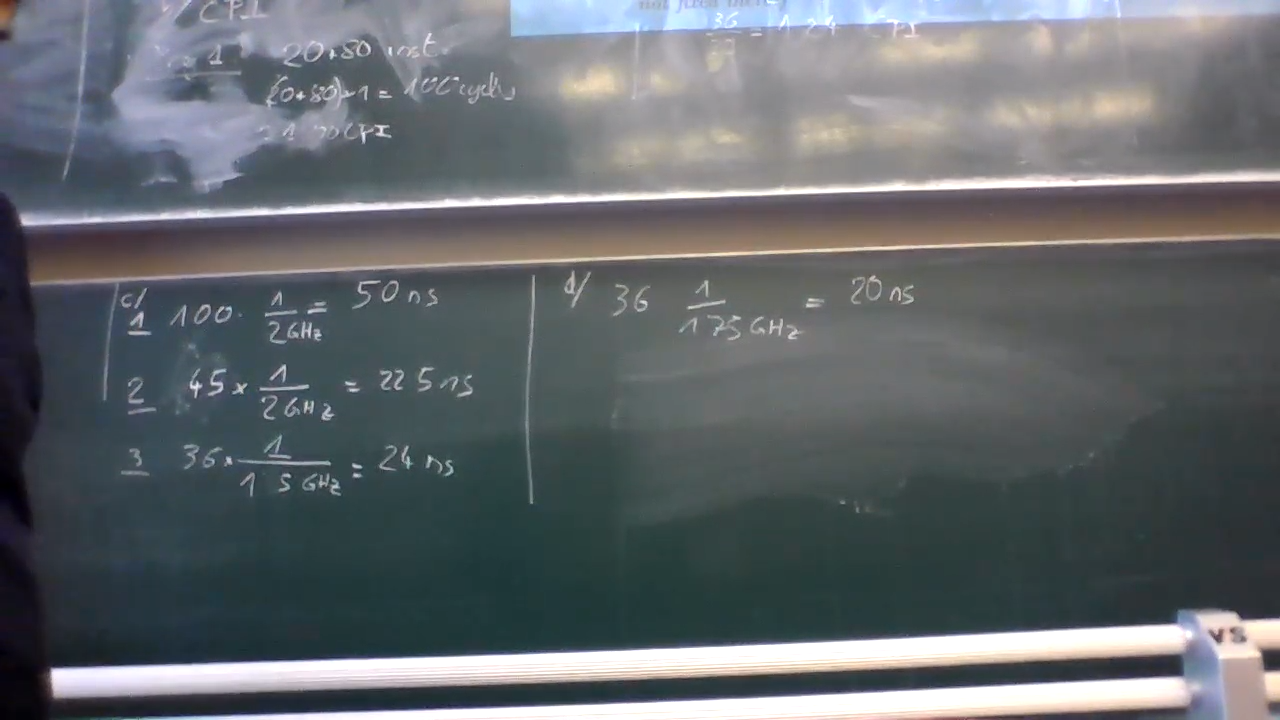 CPI
1 20+80 inst.
(20+80)·1 = 100 cycles
CPI
not
36 = 1.24 CPI
c/
1 100 · 1/2GHz = 50 ns
2 45 × 1/2GHz = 22 5 ns
3 36 · 1/1 5 GHz = 24 ns
d/ 36 1/1 75 GHz = 20 ns
VS